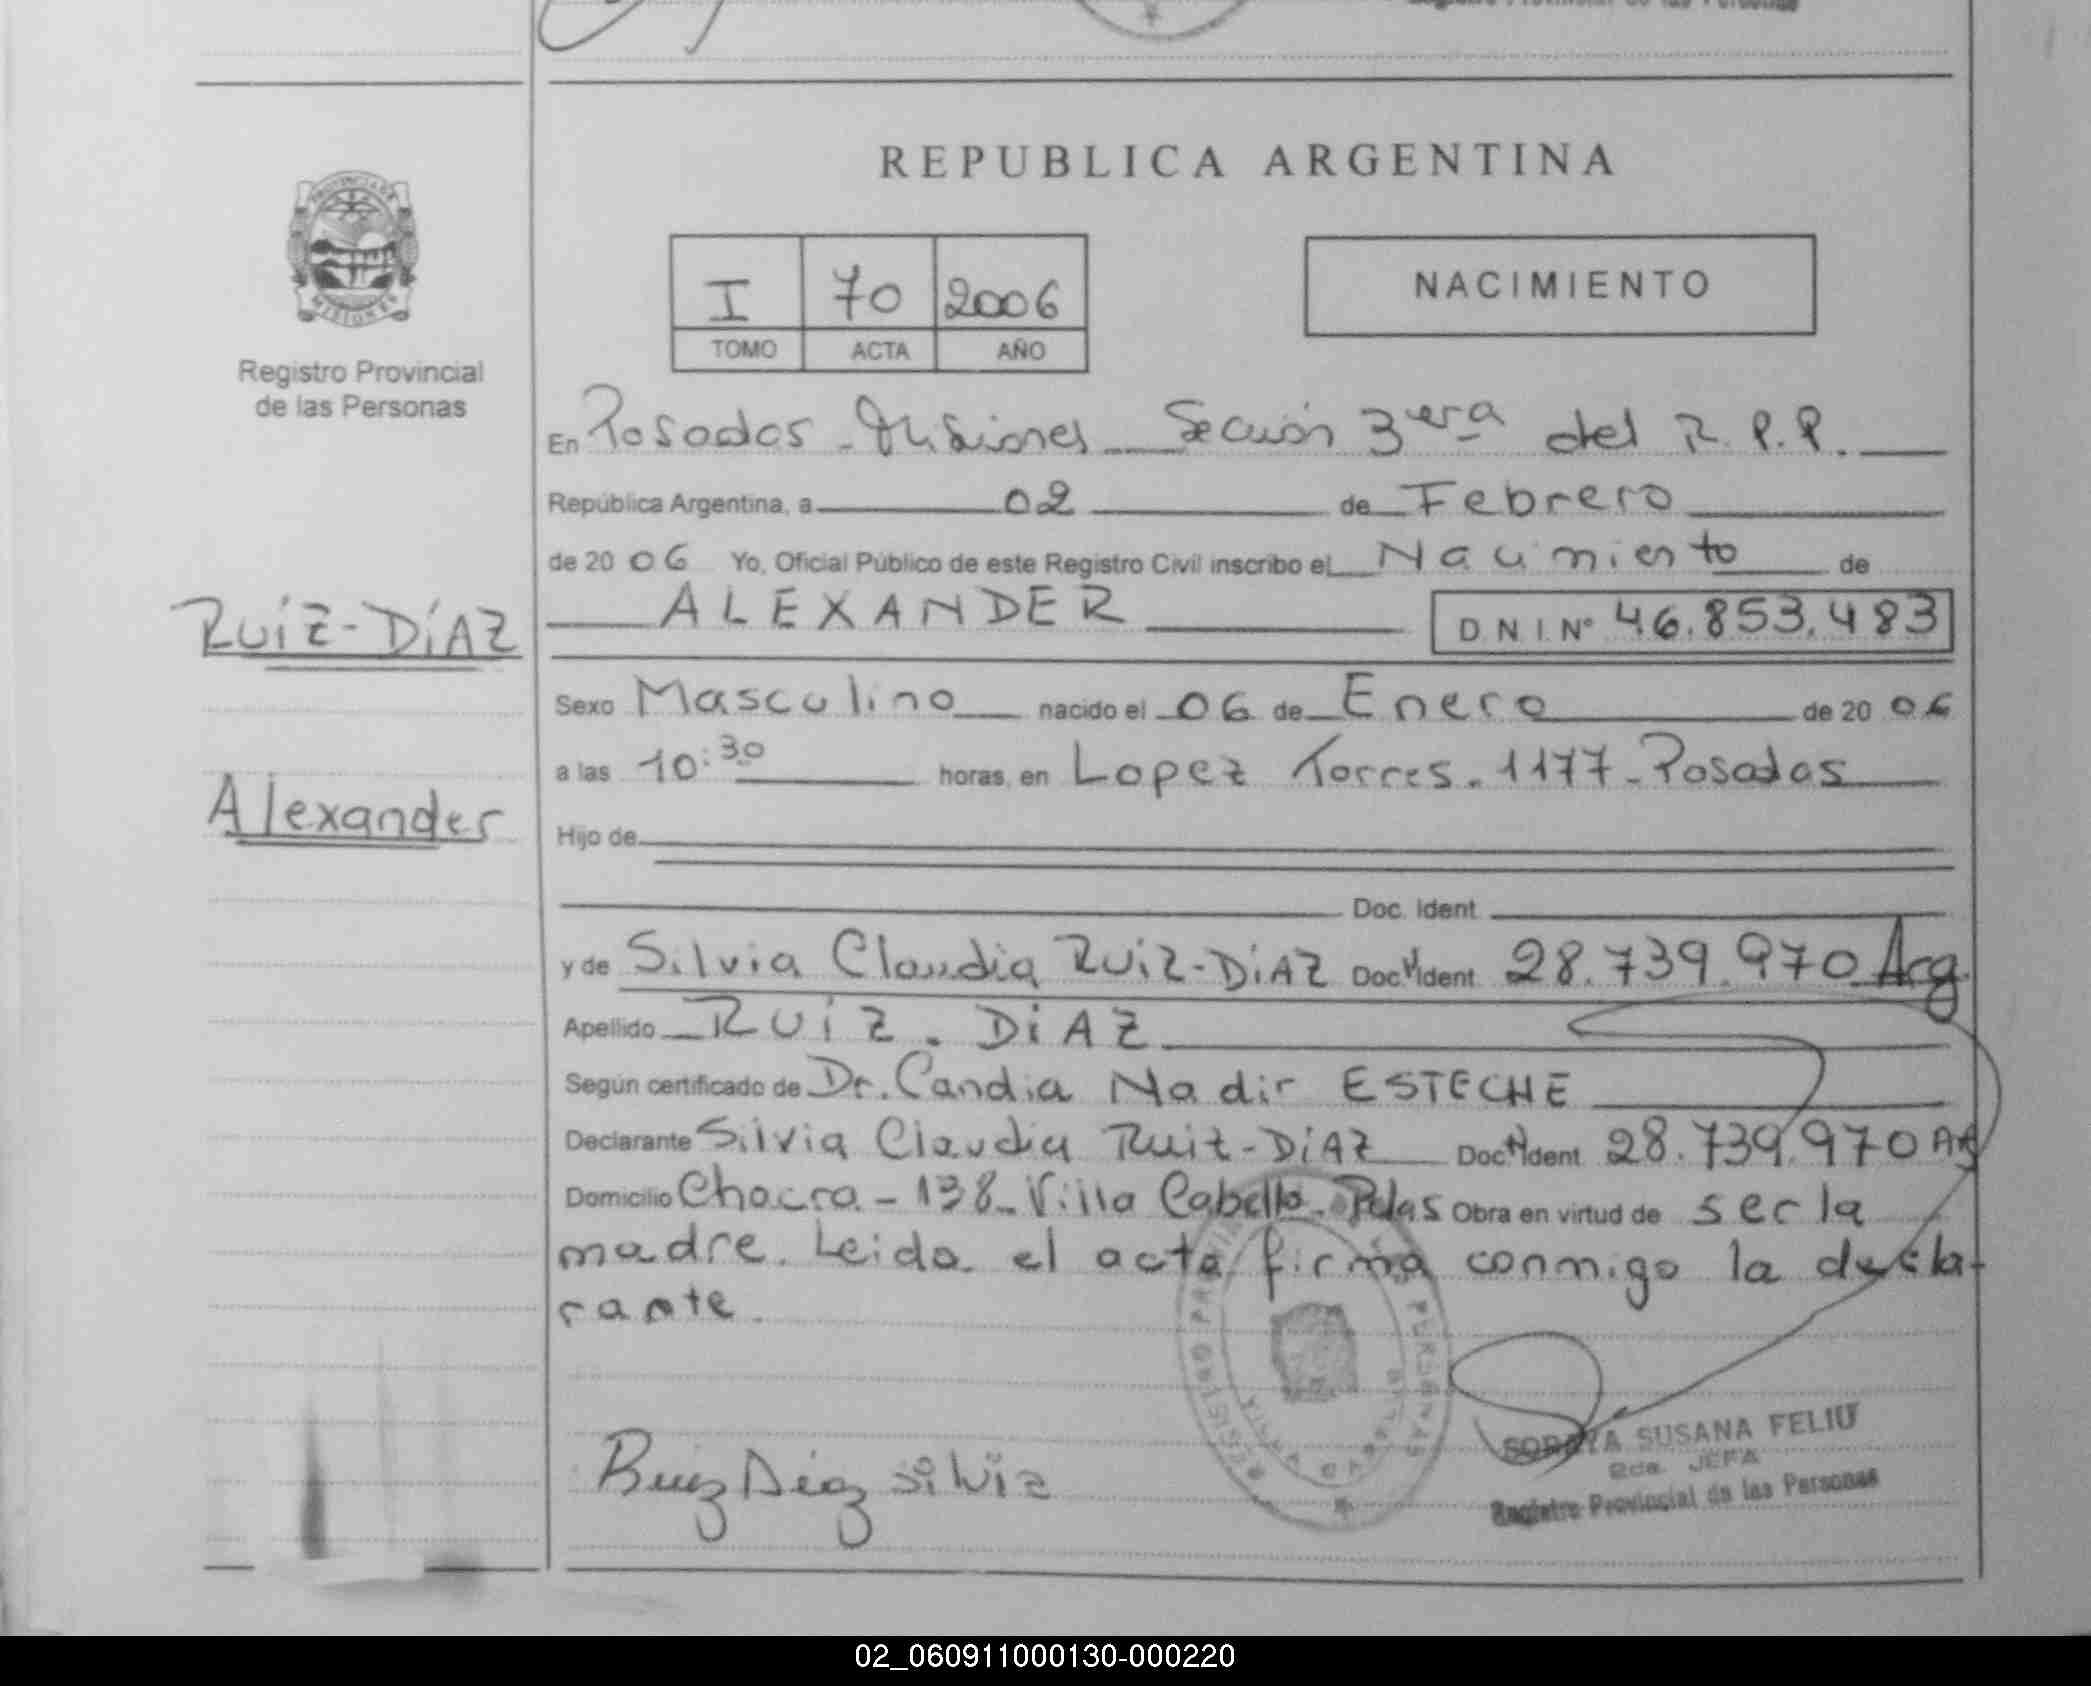 REPUBLICA ARGENTINA
PROVINCIA DE
MISIONES
Registro Provincial
de las Personas
I 70 2006
TOMO ACTA AÑO
NACIMIENTO
En Posadas - Misiones Sección 3era del R.P.P.
República Argentina, a 02 de Febrero
de 20 06 Yo, Oficial Público de este Registro Civil inscribo el Nacimiento de
Ruiz-Diaz
ALEXANDER DNI Nº 46.853.483
Sexo Masculino nacido el 06 de Enero de 20 06
a las 10:30 horas, en Lopez Torres - 1177 - Posadas
Alexander
Hijo de
Doc. Ident
y de Silvia Claudia Ruiz-Diaz Doc. Ident 28.739.970 Arg
Apellido Ruiz - Diaz
Según certificado de Dr. Candia Nadir ESTECHE
Declarante Silvia Claudia Ruiz-Diaz Doc. Ident 28.739.970 Arg
Domicilio Chacra - 138 - Villa Cabello - Pdas Obra en virtud de ser la
madre. Leida el acta firma conmigo la decla-
rante.
Ruiz Diaz Silvia
SORAYA SUSANA FELIU
2da. JEFA
Registro Provincial de las Personas
02_060911000130-000220